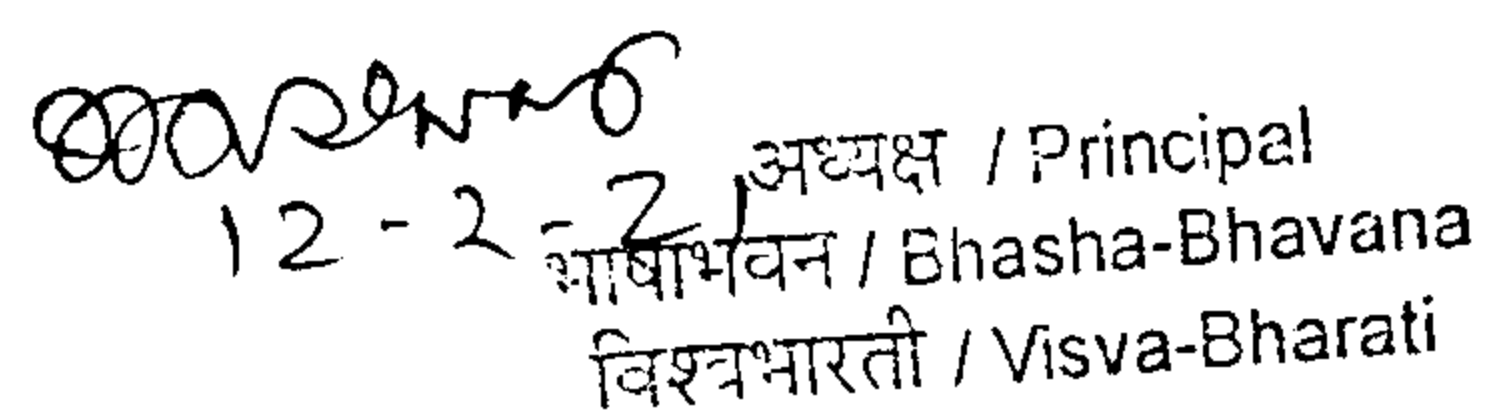 12-2-21
अध्यक्ष / Principal
भाषाभवन / Bhasha-Bhavana
विश्वभारती / Visva-Bharati